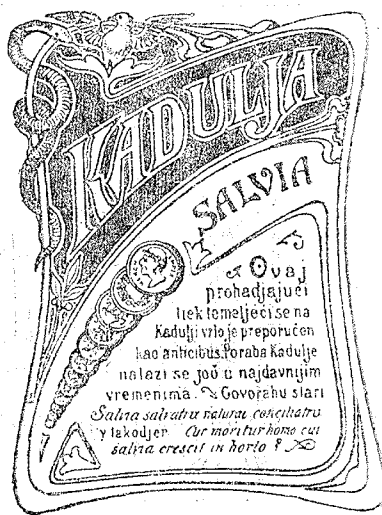 KADULJA
SALVIA
Ovaj
prohadjajući
liek temeljeći se na
Kadulji vrlo je preporučen
kao antichbus. Poraba Kadulje
nalazi se još u najdavnijim
vremenima. Govorahu stari
Salvia salvatrix naturae conciliatrix
y takodjer Cur moritur homo cui
salvia crescit in horto ?